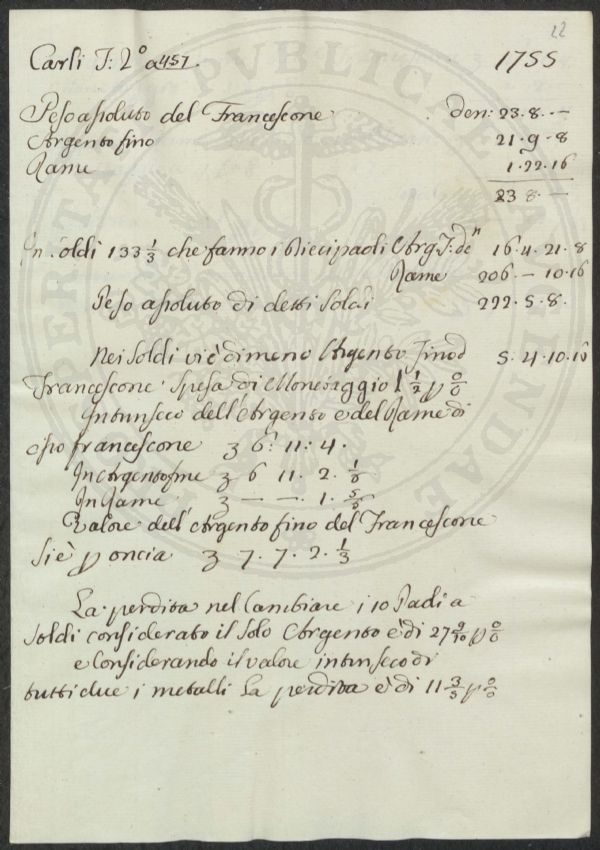 22
Carli T: 2º a 457. 1755
Peso assoluto del Francescone den: 23. 8. —
Argento fino 21. 9. 8
Rame 1. 22. 16
23 8. —
In soldi 133 1/3 che fanno i Dieci paoli Arg. F: den 16. 4. 21. 8
Rame 206 — 10. 16
Peso assoluto di detti soldi 222. 5. 8.
Nei soldi vi è di meno Argento fino d 5. 4. 10. 16
Francescone. Spesa di Monetaggio 1 1/2 p 0/0
Intrinseco dell'Argento e del Rame di
esso francescone 6: 11: 4.
In Argento fine 6 11. 2. 1/6
In Rame — — 1. 5/6
Valore dell'Argento fino del Francescone
si è p oncia 7. 7. 2. 1/3
La perdita nel Cambiare i 10 Paoli a
soldi considerato il solo Argento è di 27 9/10 p 0/0
e Considerando il valore intrinseco di
tutti due i metalli la perdita è di 11 3/5 p 0/0
PERITA PVBLICAE AGENDAE